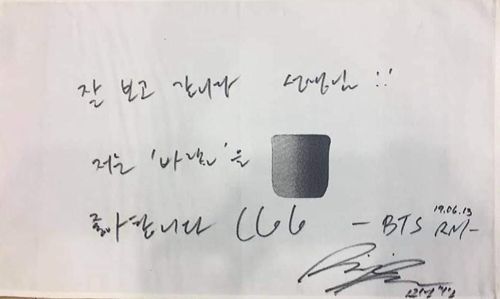 잘 보고 갑니다 선생님
저는 '바람'을
19.06.13
좋아합니다 - BTS RM-